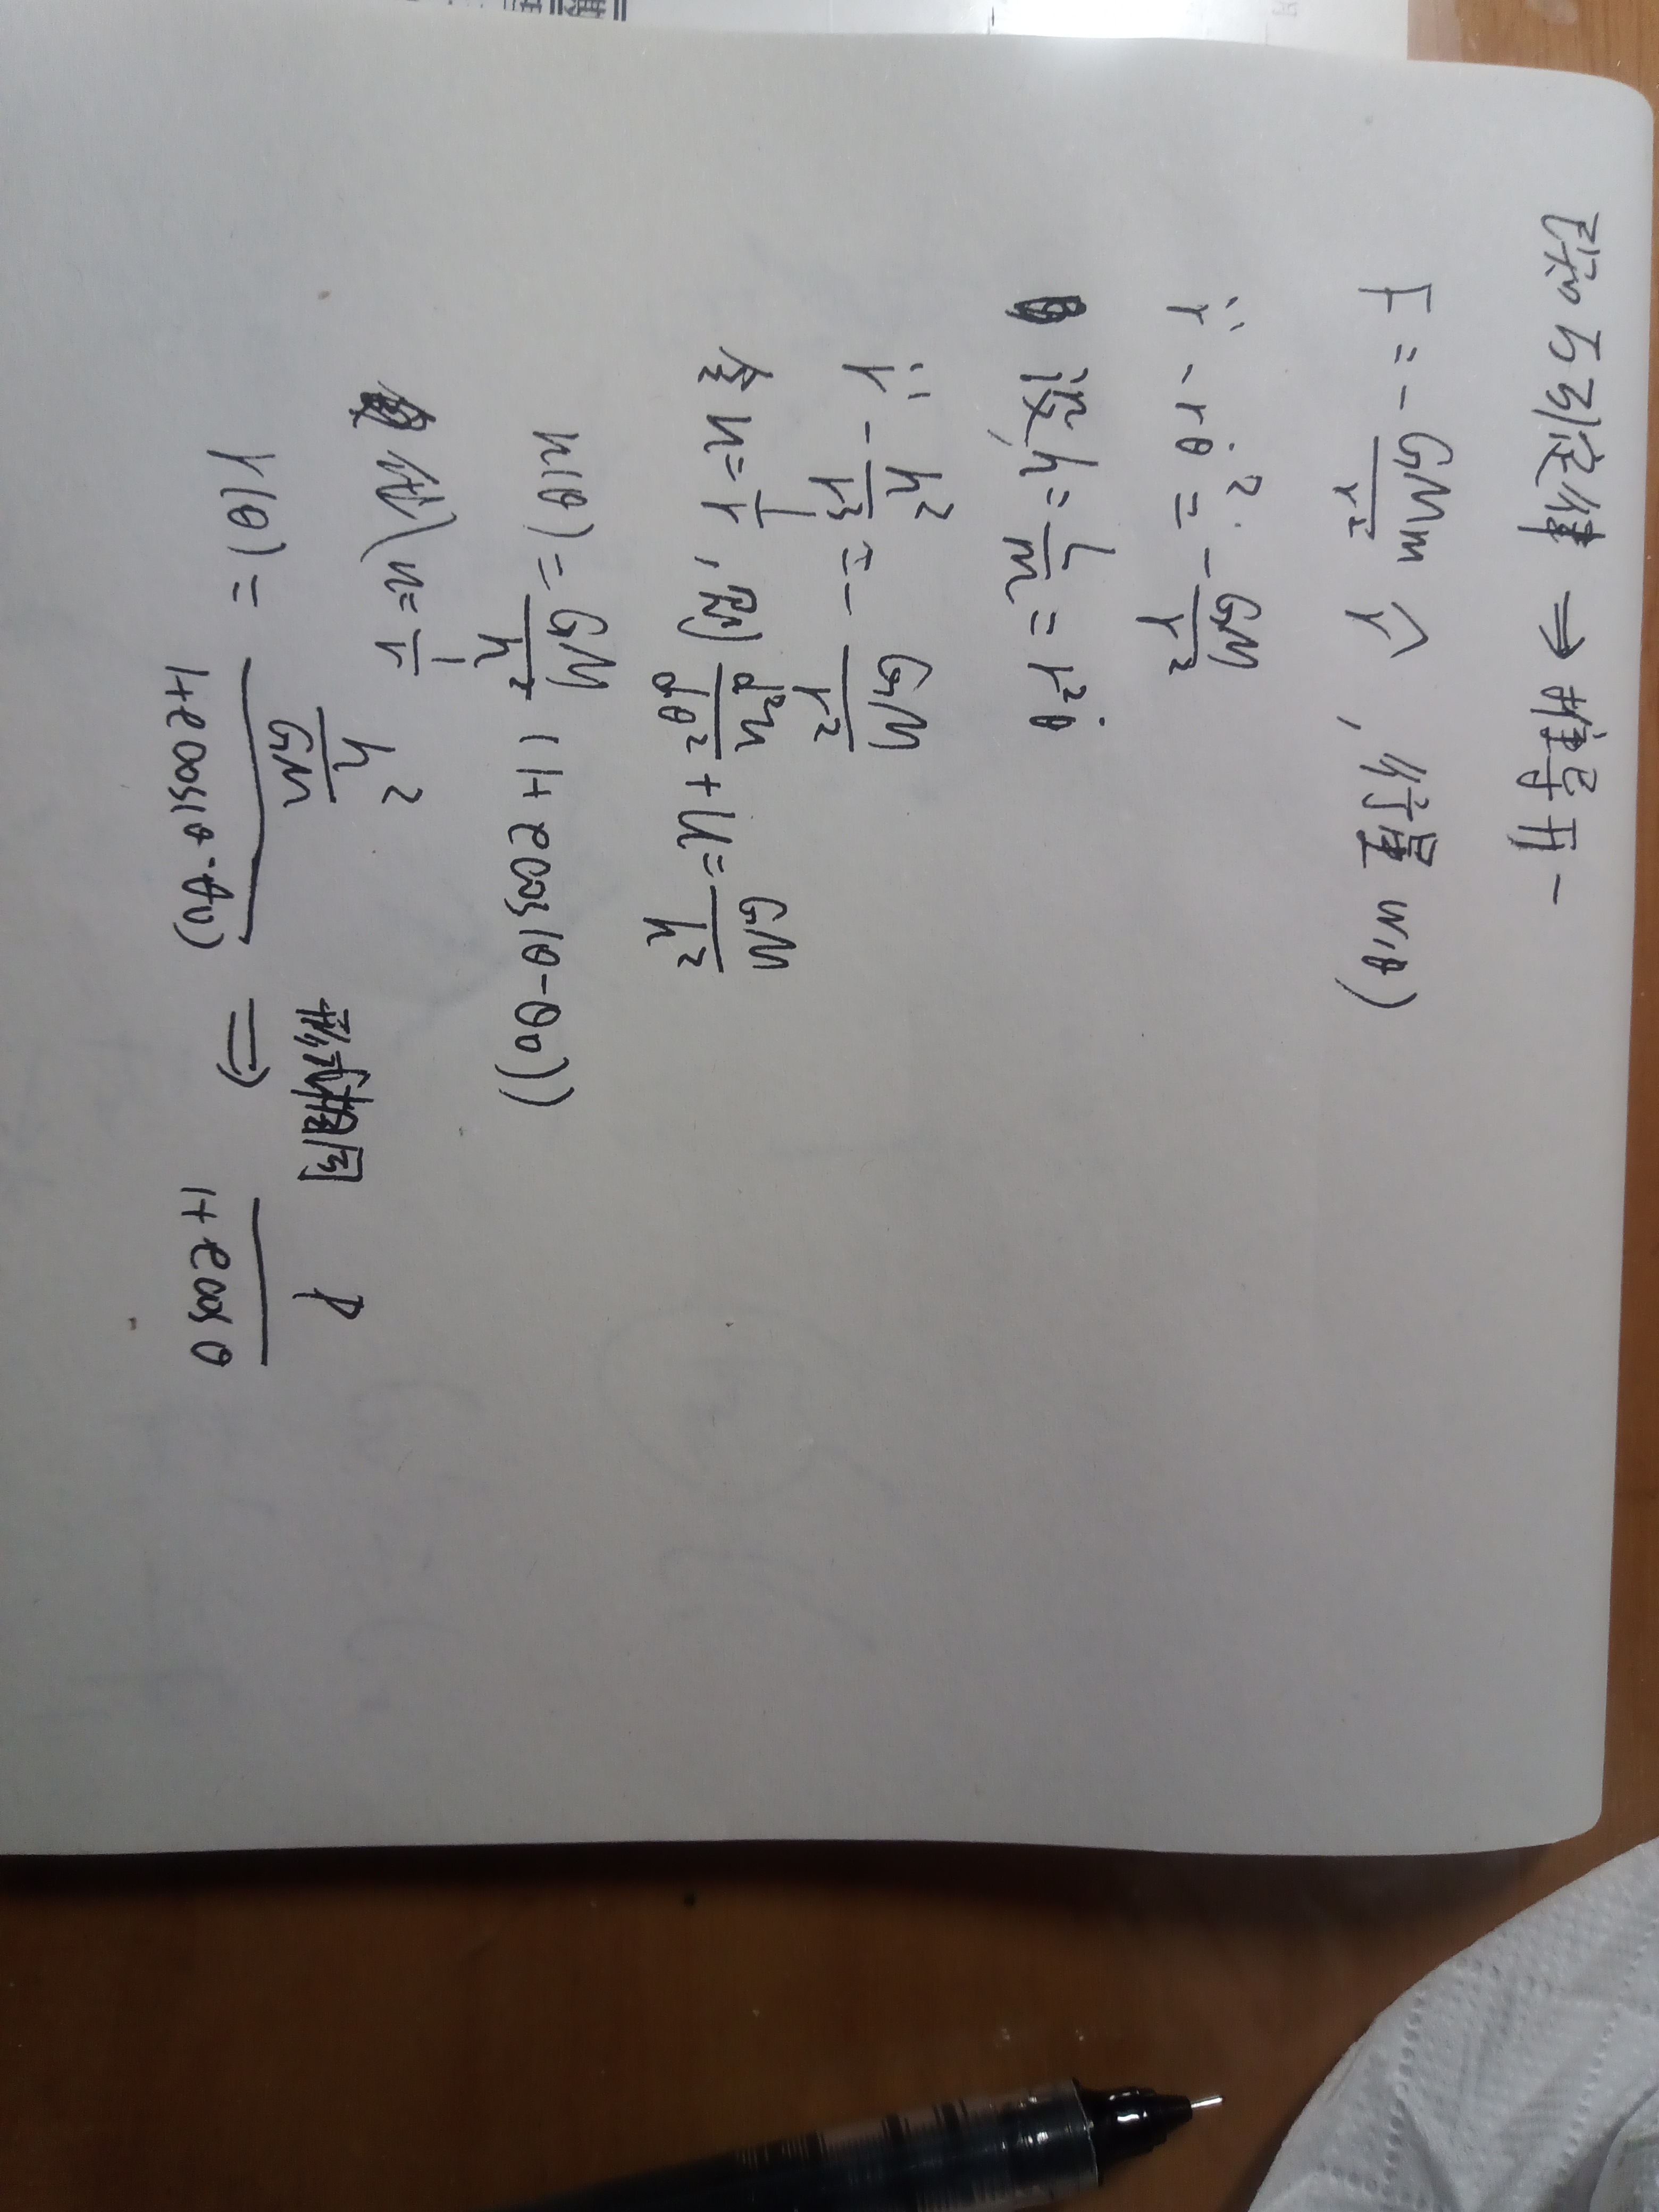 已知万引定律 ⇒ 推导开一
F = - GMm/r² r̂, 行星 m,θ)
r̈ - rθ̇² = - GM/r²
设 h = L/m = r²θ̇
r̈ - h²/r³ = - GM/r²
令 u = 1/r, 则 d²u/dθ² + u = GM/h²
u(θ) = GM/h² (1+ecos(θ-θ0))
u = 1/r
r(θ) = h²/GM / 1+ecos(θ-θ0) ⇒ p / 1+ecosθ